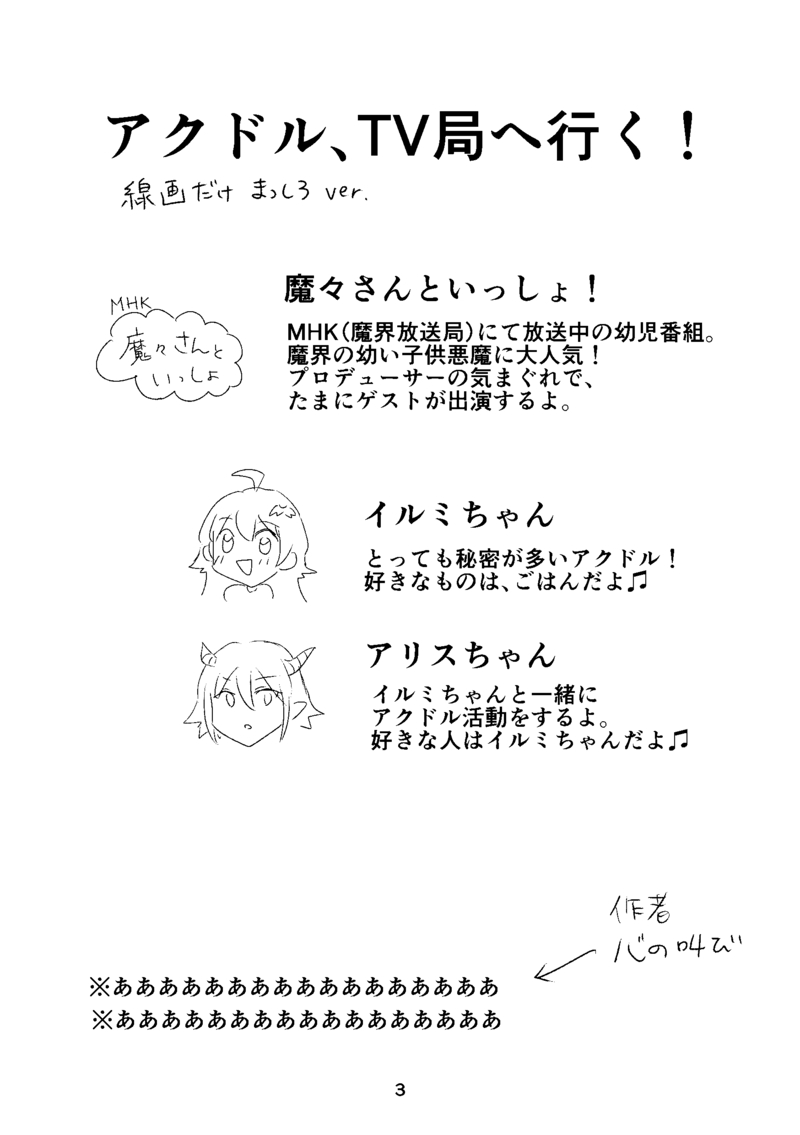 アクドル、TV局へ行く!
線画だけ まっしろ ver.
魔々さんといっしょ!
MHK
魔々さんと
いっしょ
MHK(魔界放送局)にて放送中の幼児番組。
魔界の幼い子供悪魔に大人気!
プロデューサーの気まぐれで、
たまにゲストが出演するよ。
イルミちゃん
とっても秘密が多いアクドル!
好きなものは、ごはんだよ♫
アリスちゃん
イルミちゃんと一緒に
アクドル活動をするよ。
好きな人はイルミちゃんだよ♫
作者
心の叫び
※あああああああああああああああああ
※あああああああああああああああああ
3